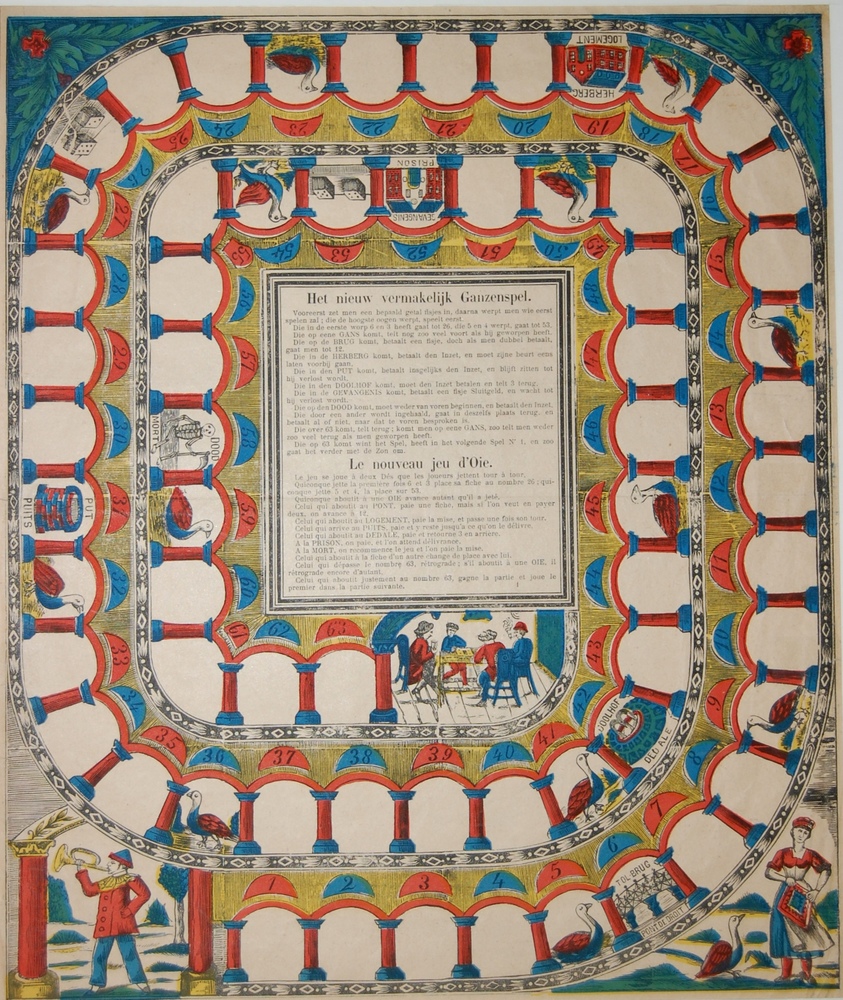 Het nieuw vermakelijk Ganzenspel.
Vooreerst zet men een bepaald getal fisjes in, daarna werpt men wie eerst
spelen zal ; die de hoogste oogen werpt, speelt eerst.
Die in de eerste worp 6 en 3 heeft gaat tot 26, die 5 en 4 werpt, gaat tot 53.
Die op eene GANS komt, telt nog zoo veel voort als hij geworpen heeft.
Die op de BRUG komt, betaalt een fisje, doch als men dubbel betaalt,
gaat men tot 12.
Die in de HERBERG komt, betaalt den Inzet, en moet zijne beurt eens
laten voorbij gaan.
Die in den PUT komt, betaalt insgelijks den Inzet, en blijft zitten tot
hij verlost wordt.
Die in den DOOLHOF komt, moet den Inzet betalen en telt 3 terug.
Die in de GEVANGENIS komt, betaalt een fisje Sluitgeld, en wacht tot
hij verlost wordt.
Die op den DOOD komt, moet weder van voren beginnen, en betaalt den Inzet.
Die door een ander wordt ingehaald, gaat in deszelfs plaats terug, en
betaalt al of niet, naar dat te voren besproken is.
Die over 63 komt, telt terug ; komt men op eene GANS, zoo telt men weder
zoo veel terug als men geworpen heeft.
Die op 63 komt wint het Spel, heeft in het volgende Spel N° 1, en zoo
gaat het verder met de Zon om.
Le nouveau jeu d'Oie.
Le jeu se joue à deux Dés que les joueurs jettent tour à tour.
Quiconque jette la première fois 6 et 3 place sa fiche au nombre 26 ; qui-
conque jette 5 et 4, la place sur 53.
Quiconque aboutit à une OIE avance autant qu'il a jeté.
Celui qui aboutit au PONT, paie une fiche, mais si l'on veut en payer
deux, on avance à 12.
Celui qui aboutit au LOGEMENT, paie la mise, et passe une fois son tour.
Celui qui arrive au PUITS, paie et y reste jusqu'à ce qu'on le délivre.
Celui qui aboutit au DEDALE, paie et retourne 3 en arrière.
A la PRISON, on paie, et l'on attend délivrance.
A la MORT, on recommence le jeu et l'on paie la mise.
Celui qui aboutit à la fiche d'un autre change de place avec lui.
Celui qui dépasse le nombre 63, rétrograde ; s'il aboutit à une OIE, il
rétrograde encore d'autant.
Celui qui aboutit justement au nombre 63, gagne la partie et joue le
premier dans la partie suivante.
1
2
3
4
5
6
TOL BRUG
PONT DE DROIT
7
8
9
10
11
12
13
14
15
16
17
18
19
HERBERG
LOGEMENT
20
21
22
23
24
25
26
27
28
29
30
31
PUT
PUITS
32
33
34
35
36
37
38
39
40
41
42
DOOLHOF
DEDALE
43
44
45
46
47
48
49
50
51
52
GEVANGENIS
PRISON
53
54
55
56
57
58
DOOD
MORT
59
60
61
62
63